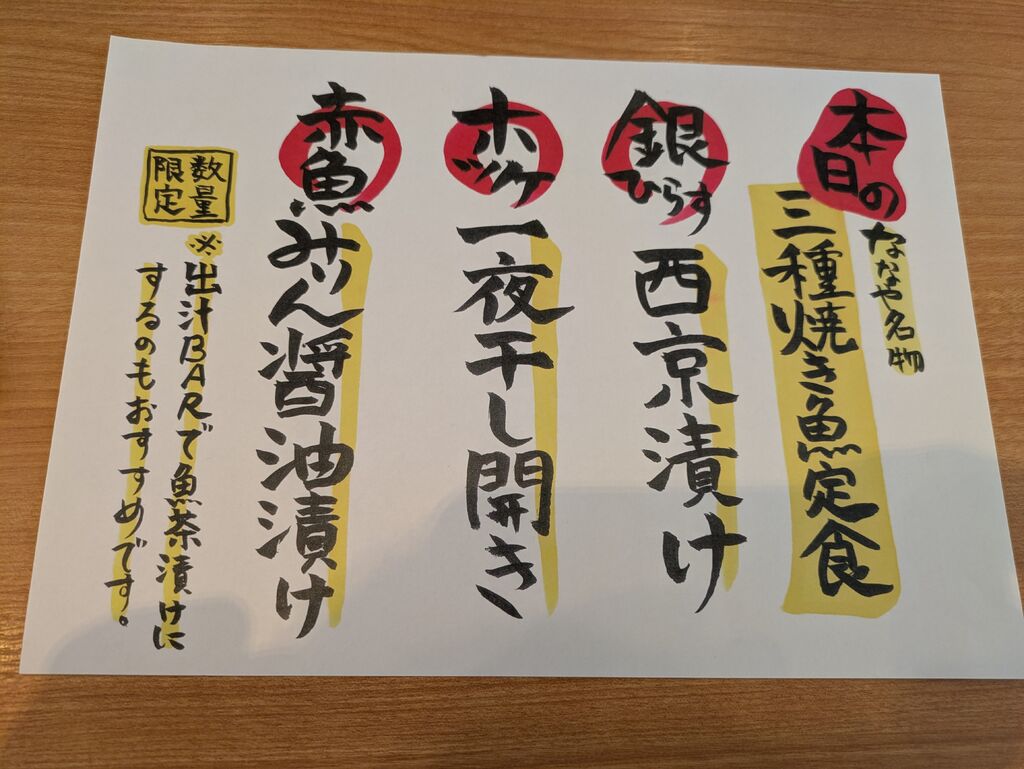 本日の
ななや名物
三種焼き魚定食
銀ひらす
西京漬け
ホッケ
一夜干し開き
赤魚
みりん醤油漬け
数量
限定
※出汁BARで魚茶漬けに
するのもおすすめです。